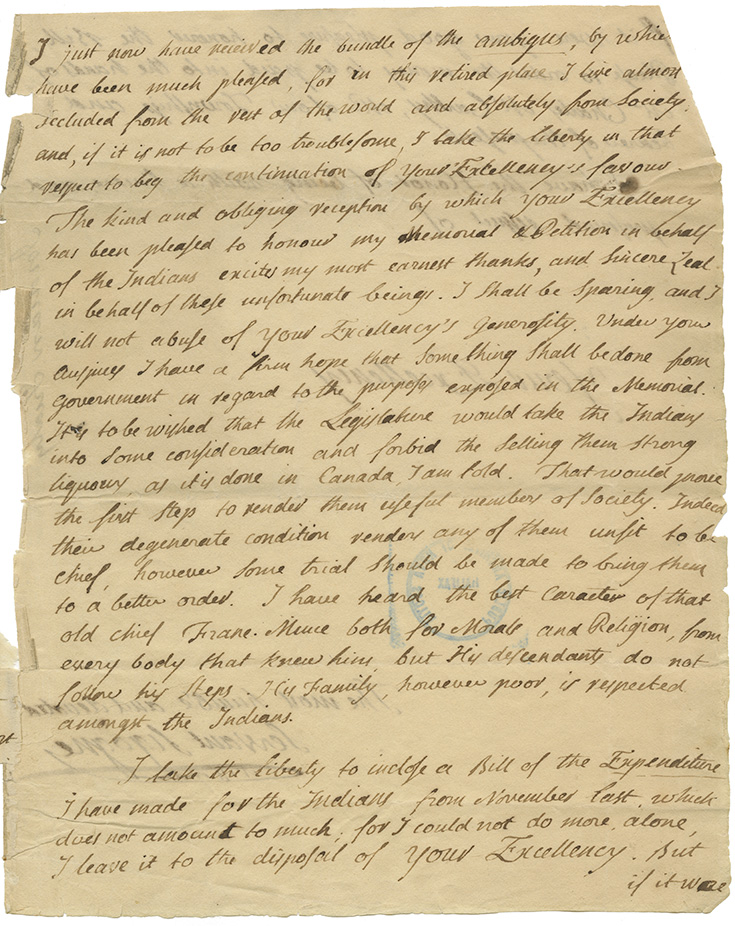 I just now have received the bundle of the ambigus, by which
have been much pleased, for in this retired place I live almost
secluded from the rest of the world and absolutely from Society.
and, if it is not to be too troublesome, I take the liberty in that
respect to beg the continuation of Your Excellency's favour.
The kind and obliging reception by which your Excellency
has been pleased to honour my Memorial & Petition in behalf
of the Indians excites my most earnest thanks, and sincere Zeal
in behalf of these unfortunate beings. I shall be Sparing, and I
will not abuse of Your Excellency's Generosity. Under your
Auspices I have a firm hope that Something Shall be done from
Government in regard to the purposes exposed in the Memorial.
It is to be wished that the Legislature would take the Indians
into Some consideration and forbid the Selling them Strong
liquors, as it is done in Canada, I am told. That would prove
the first Step to render them useful members of Society. Indeed
their degenerate condition renders any of them unfit to be
chief, however some trial should be made to bring them
to a better order. I have heard the best Caracter of that
old chief Franc. Muce both for Morals and Religion, from
every body that knew him, but His descendants do not
follow his Steps. His Family, however poor, is respected
amongst the Indians.
I take the liberty to inclose a Bill of the Expenditure
I have made for the Indians from November last, which
does not amount to much, for I could not do more alone,
I leave it to the disposal of Your Excellency. But
if it were